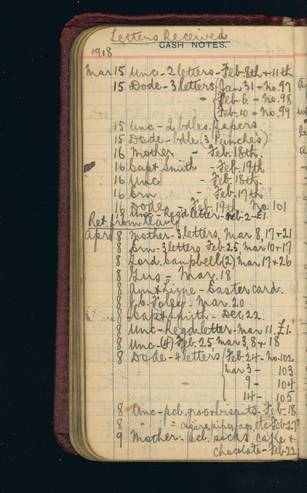 Letters Received
CASH NOTES.
1918
Mar 15 Unc - 2 letters - Feb 8th & 11th
15 Dode - 3 letters Jan 31 - No. 97
" Feb. 6 - No. 98
Feb. 10 - No. 99
15 Unc - 2 bdles. Papers
15 Dode - bdle (3 Punches)
16 Mother - Feb. 18th.
16 Capt Smith - Feb. 19th
16 Unc - Feb. 18th.
16 Ern - Feb. 17th
16 Dode - Feb. 19th No. 101
18 Unc - Regd letter - Feb. 2 - £1.
Ret. from leave
Apr 8 Mother - 3 letters, Mar 8, 17 & 21
8 Ern - 3 letters Feb 25, Mar 10 & 17
8 Gord. Campbell (2) Mar 17 & 26
8 Gus - Mar. 18
8 & Lizzie - Easter card.
8 Foley - Mar. 20
8 Capt Smith - Dec 22.
8 Unc - Regd. letter - Mar 11. £1.
8 Unc - (4) Feb 25, Mar 3, 8 & 18
8 Dode - 4 letters Feb 24 - No. 102
Mar 3 - 103
9 - 104
14 - 105
8 Unc - pcl. - Feb. 18
8 " " pipe, etc Feb 27
9 Mother - pcl. socks cake &
chocolate - Feb 22